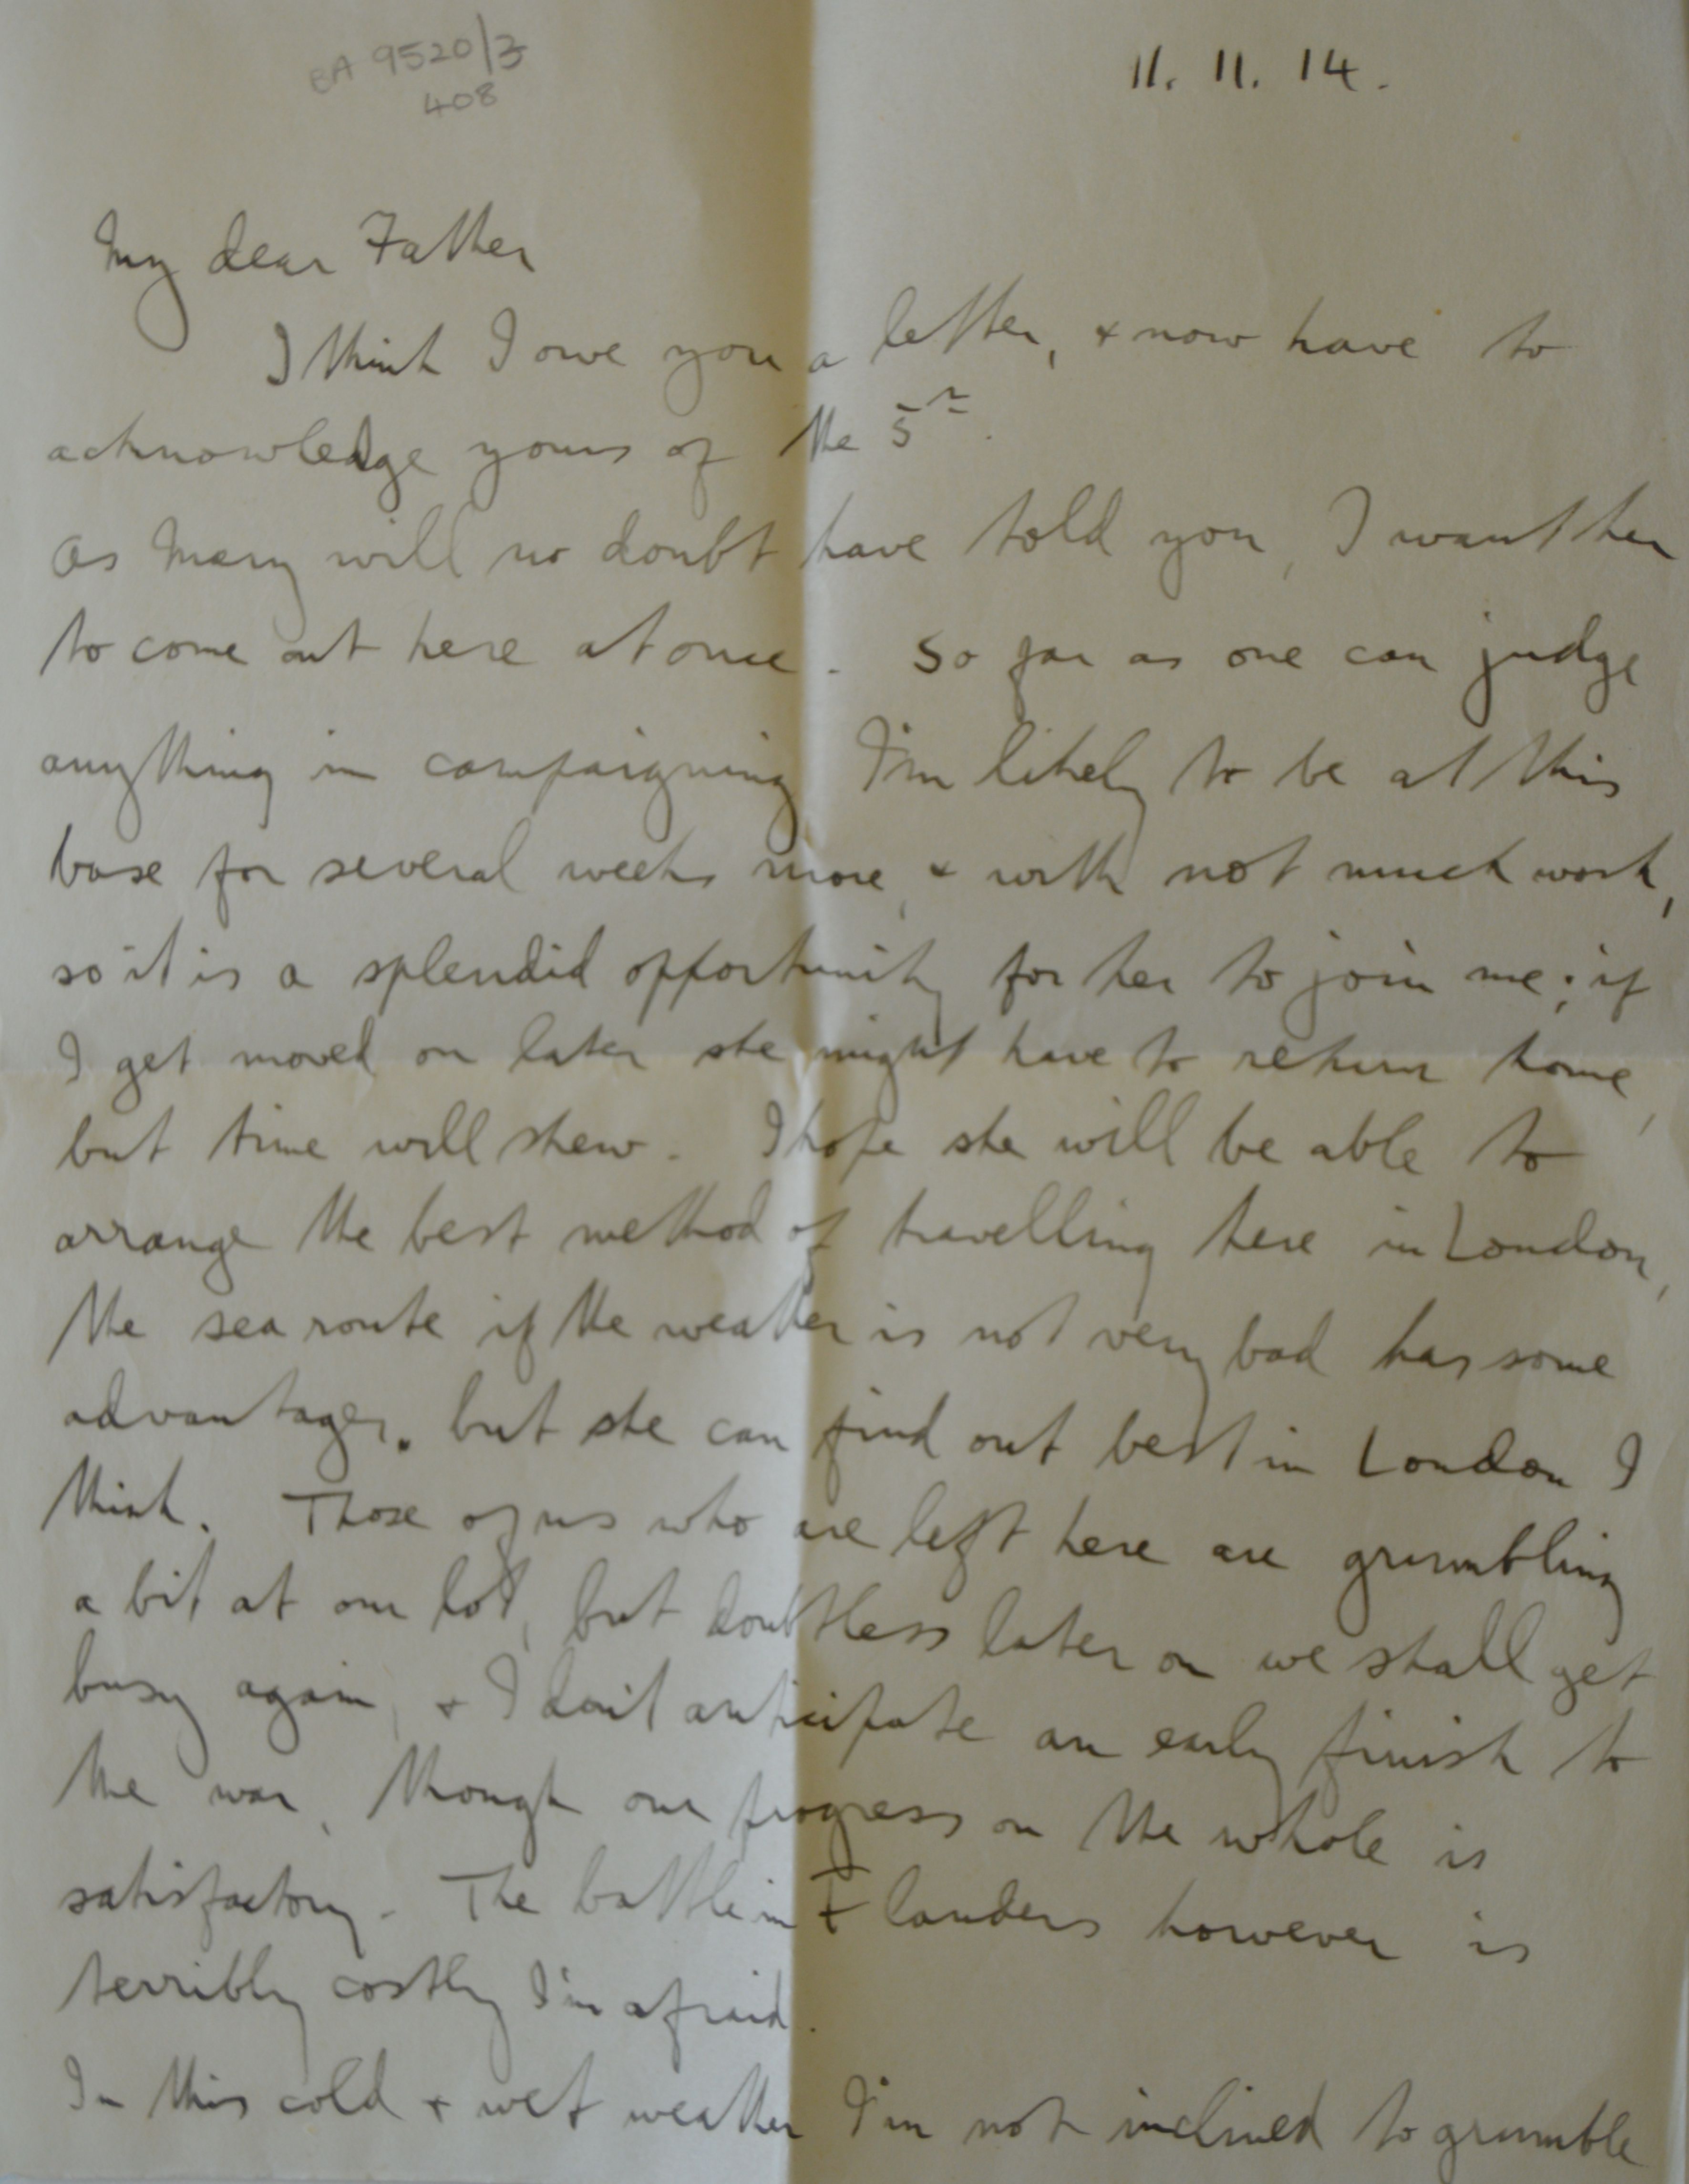 BA 9520/3
408
11. 11. 14.
My dear Father
I think I owe you a letter, & now have to
acknowledge yours of the 5th.
As Mary will no doubt have told you, I want her
to come out here at once. So far as one can judge
anything in campaigning I'm likely to be at this
base for several weeks more, & with not much work,
so it is a splendid opportunity for her to join me; if
I get moved on later she might have to return home,
but time will shew. I hope she will be able to
arrange the best method of travelling here in London,
the sea route if the weather is not very bad has some
advantages, but she can find out best in London I
think. Those of us who are left here are grumbling
a bit at our lot, but doubtless later on we shall get
busy again, & I don't anticipate an early finish to
the war, though our progress on the whole is
satisfactory. The battle in Flanders however is
terribly costly I'm afraid.
In this cold & wet weather I'm not inclined to grumble